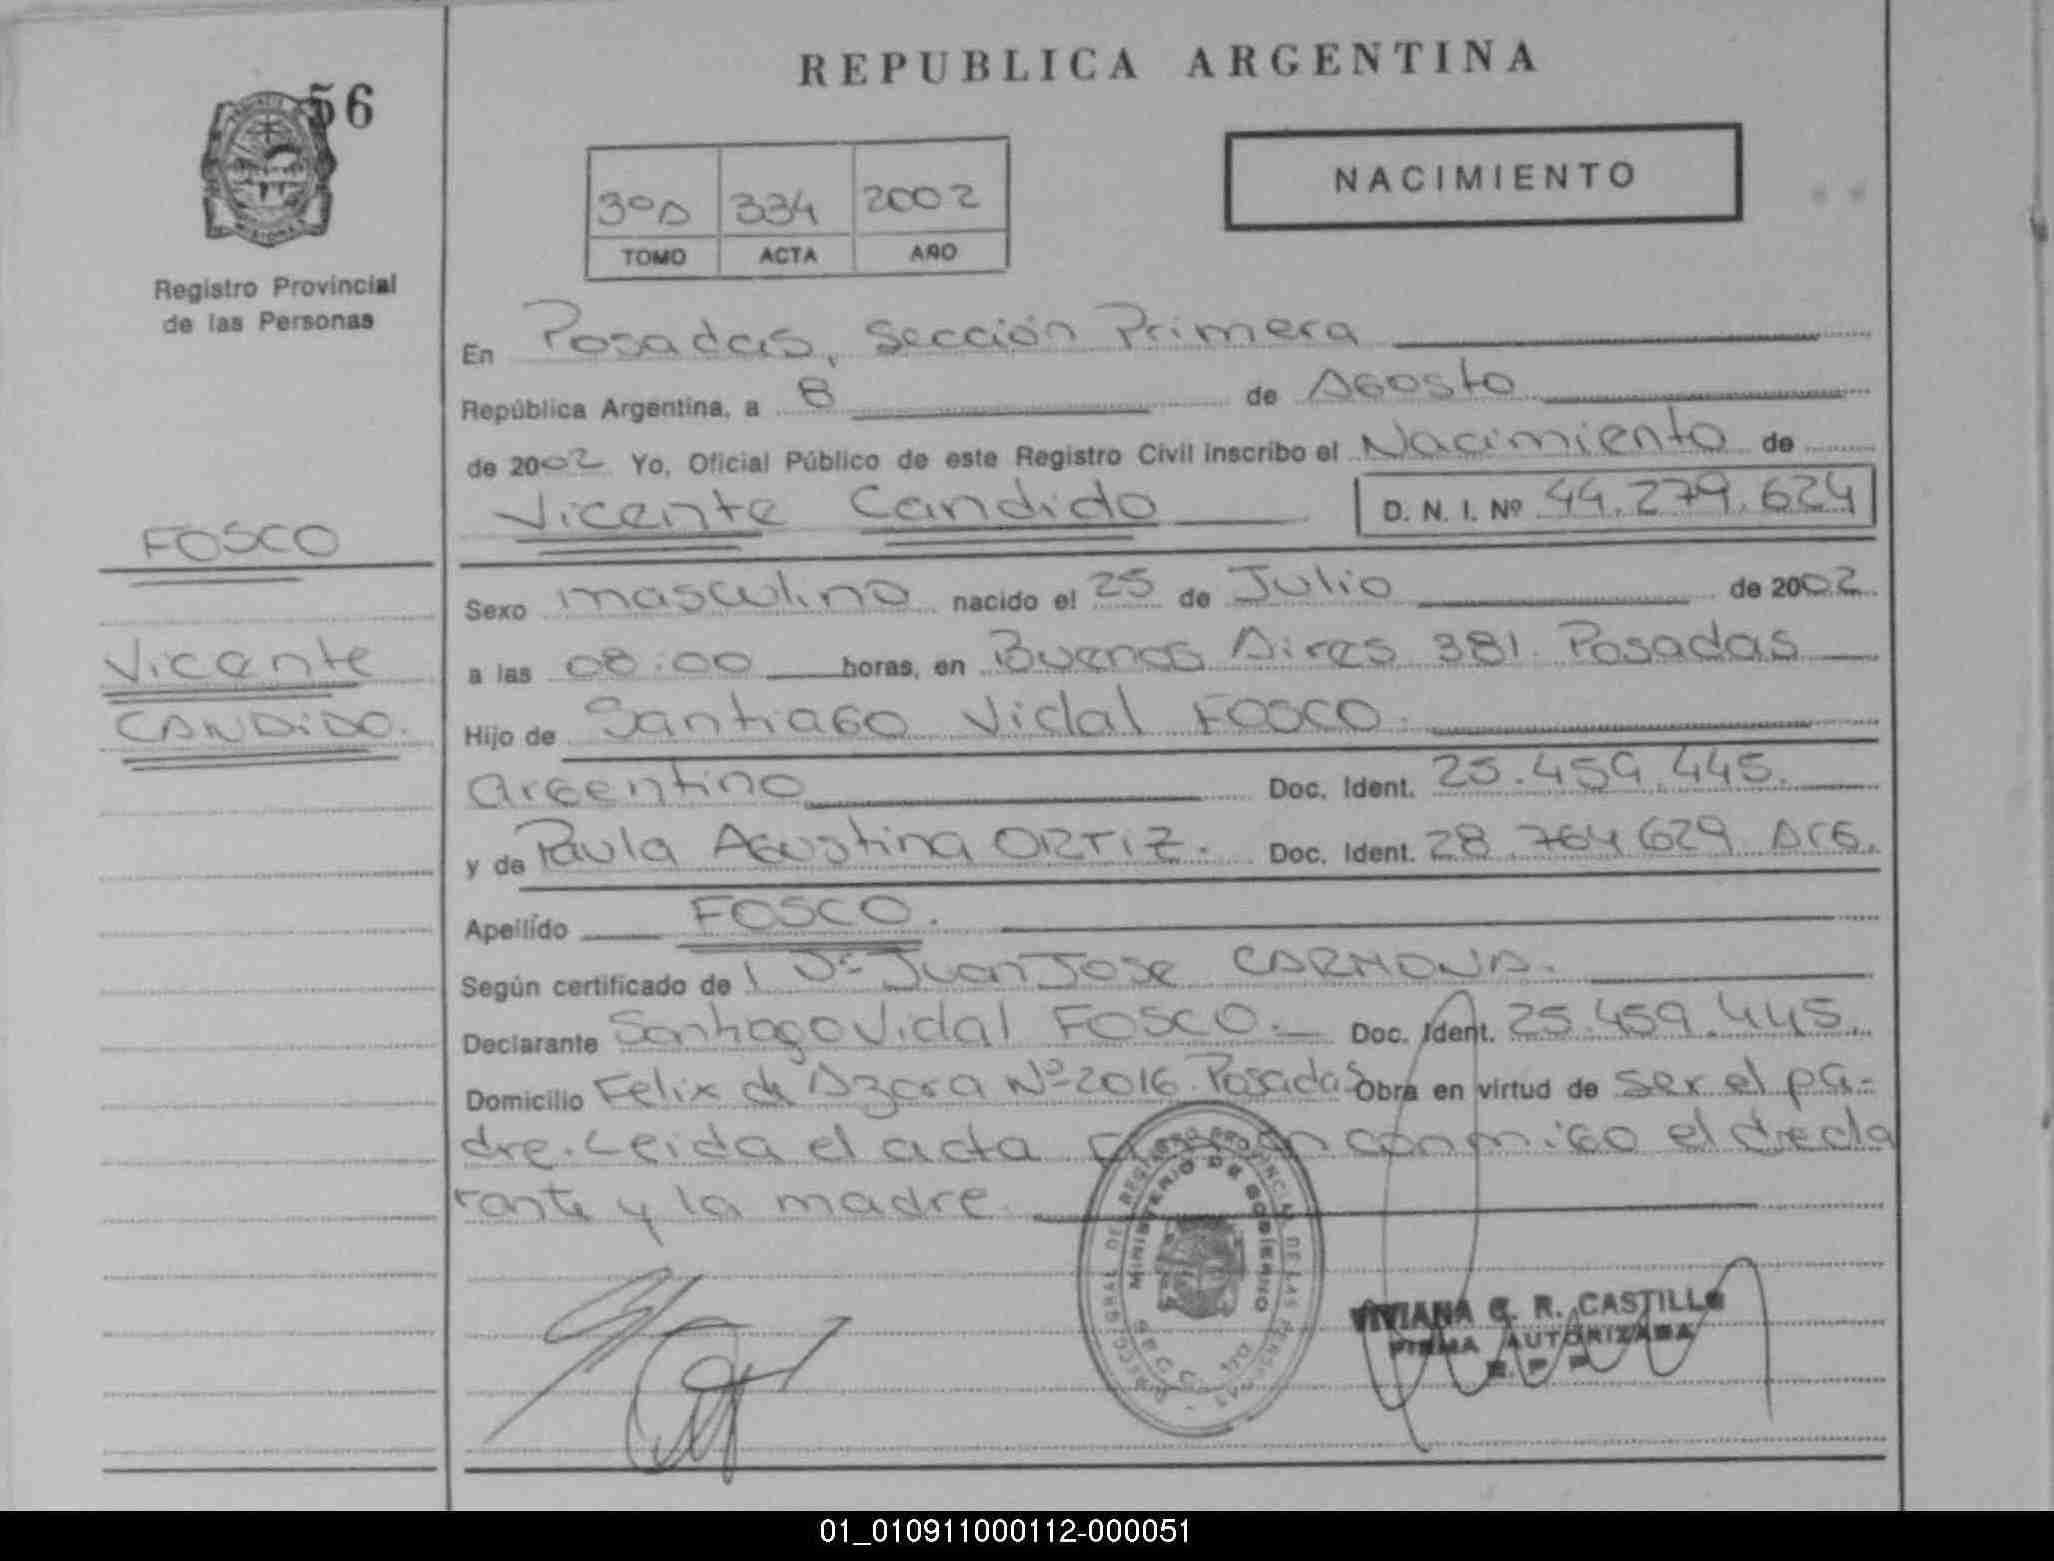 56
REPUBLICA ARGENTINA
NACIMIENTO
3ºD 334 2002
TOMO ACTA AÑO
Registro Provincial
de las Personas
En Posadas, Sección Primera
República Argentina, a 8 de Agosto
de 2002 Yo, Oficial Público de este Registro Civil inscribo el Nacimiento de
Vicente Candido D. N. I. Nº 44.279.624
FOSCO
Vicente
CANDiDO.
Sexo masculino nacido el 25 de Julio de 2002
a las 08:00 horas, en Buenos Aires 381. Posadas
Hijo de Santiago Vidal FOSCO.
Argentino Doc. Ident. 25.459.445.
y de Paula Agustina ORTIZ. Doc. Ident. 28.764.629 Arg.
Apellido FOSCO.
Según certificado de Juan Jose CARMONA.
Declarante Santiago Vidal FOSCO. Doc. Ident. 25.459.445.
Domicilio Felix de Azara Nº 2016. Posadas Obra en virtud de ser el pa-
dre. Leida el acta conmigo el decla
rante y la madre
MINISTERIO DE GOBIERNO
VIVIANA G. R. CASTILLO
FIRMA AUTORIZADA
R. P. P.
01_010911000112-000051